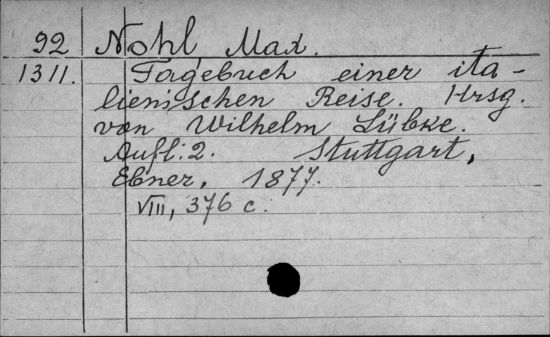 92 Nohl Max.
1311. Tagebuch einer ita-
lienischen Reise. Hrsg.
von Wilhelm Lübke.
Aufl: 2. Stuttgart,
Ebner, 1877.
VIII, 376 c.